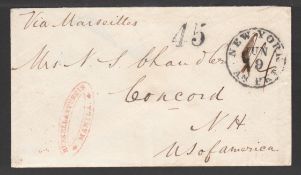 Via Marseilles
45
NEW YORK
JUN
9
AM. PKT.
Mr. N. S. Chandler
Concord
N.H
MANILA
U S of america